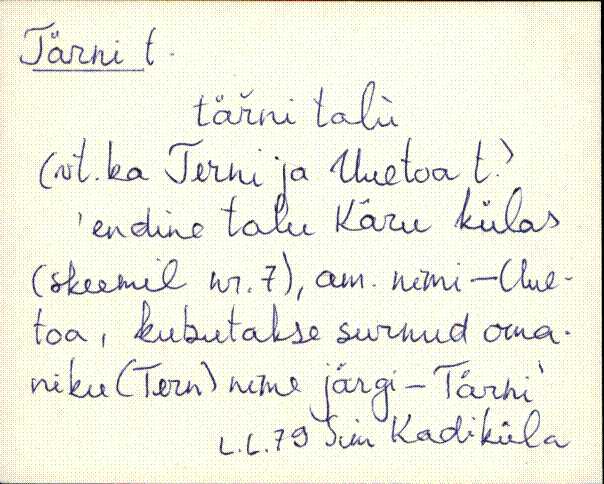 Tärni t.
täřni talù
(vt. ka Terni ja Uuetoa t.)
'endine talu Käru külas
(skeemil nr. 7), am. nimi – Uue-
toa, kubutakse surnud oma-
niku (Tern) nime järgi – Tärni'
L.L. 79 Sim Kadiküla